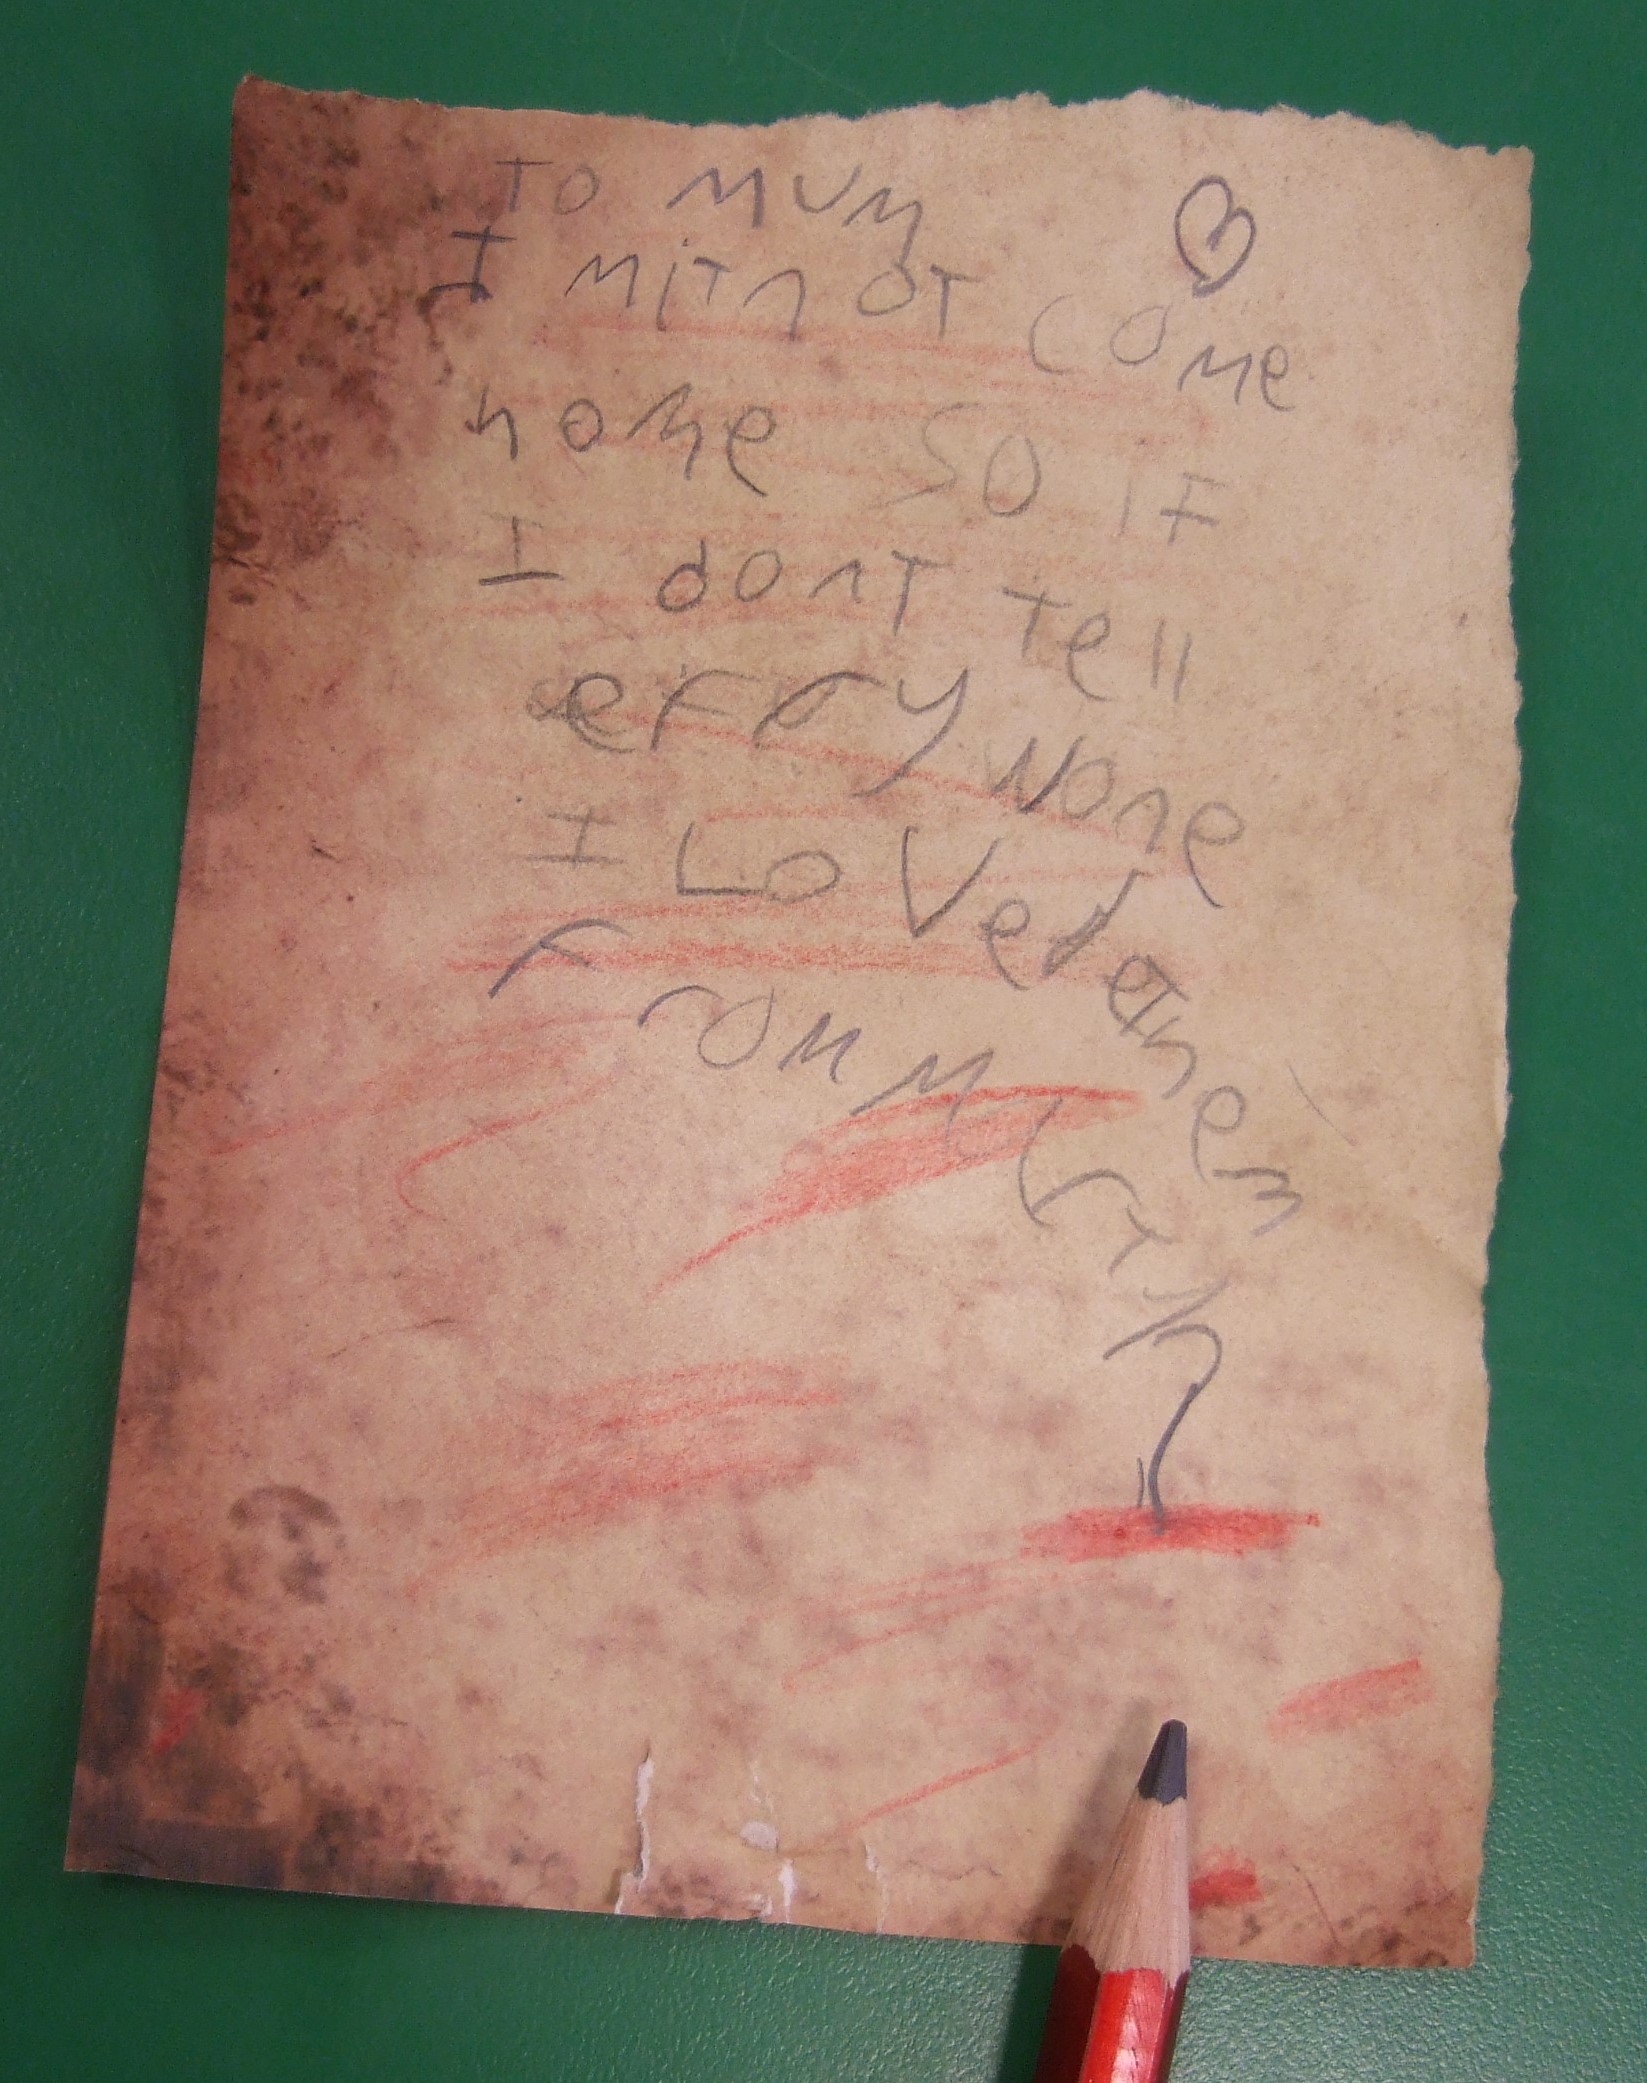 TO MUM
I MiT nOT COMe
home SO iF
I dont tell
efry None
I Loved them
From M